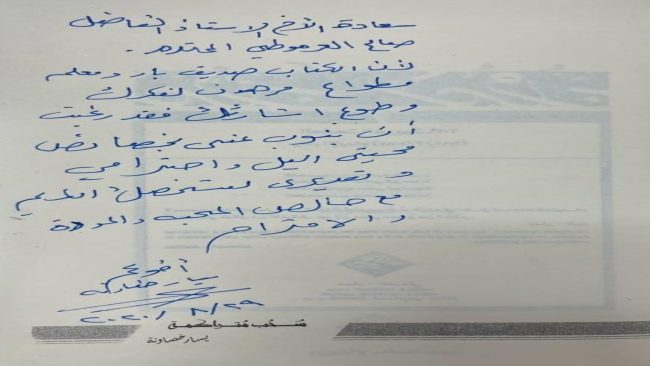 سعادة الأخ الاستاذ الفاضل
صالح العرموطي المحترم.
لأن الكتاب صديق بار ومعلم
مطواع مرهون لفكرك
وطوع اشارتك فقد رغبت
أن ينوب عني بخصائص
محبتي اليك واحترامي
وتقديري لشخصك الكريم
مع خالص المحبة والمودة
والاحترام
أخوكم
يسار خصاونة
٢٠٢٠/٨/٢٩
يسار خصاونة